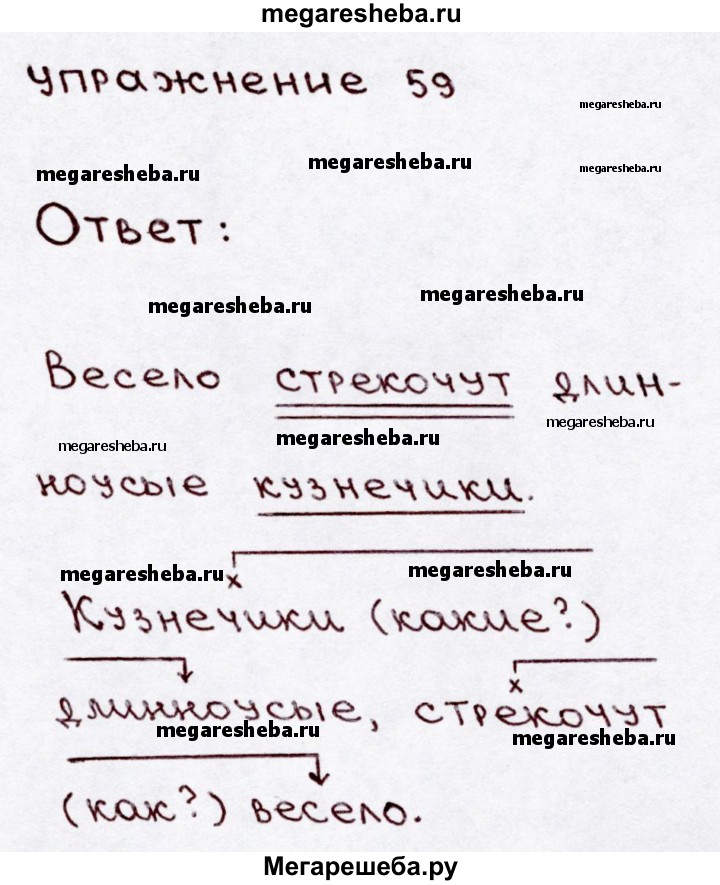 megaresheba.ru
упражнение 59
megaresheba.ru
megaresheba.ru
megaresheba.ru
megaresheba.ru
Ответ:
megaresheba.ru
megaresheba.ru
Весело стрекочут длин-
megaresheba.ru
megaresheba.ru
megaresheba.ru
ноусые кузнечики.
megaresheba.ru
megaresheba.ru
х
Кузнечики (какие?)
х
длинноусые, стрекочут
megaresheba.ru
megaresheba.ru
(как?) весело.
Мегарешеба.ру